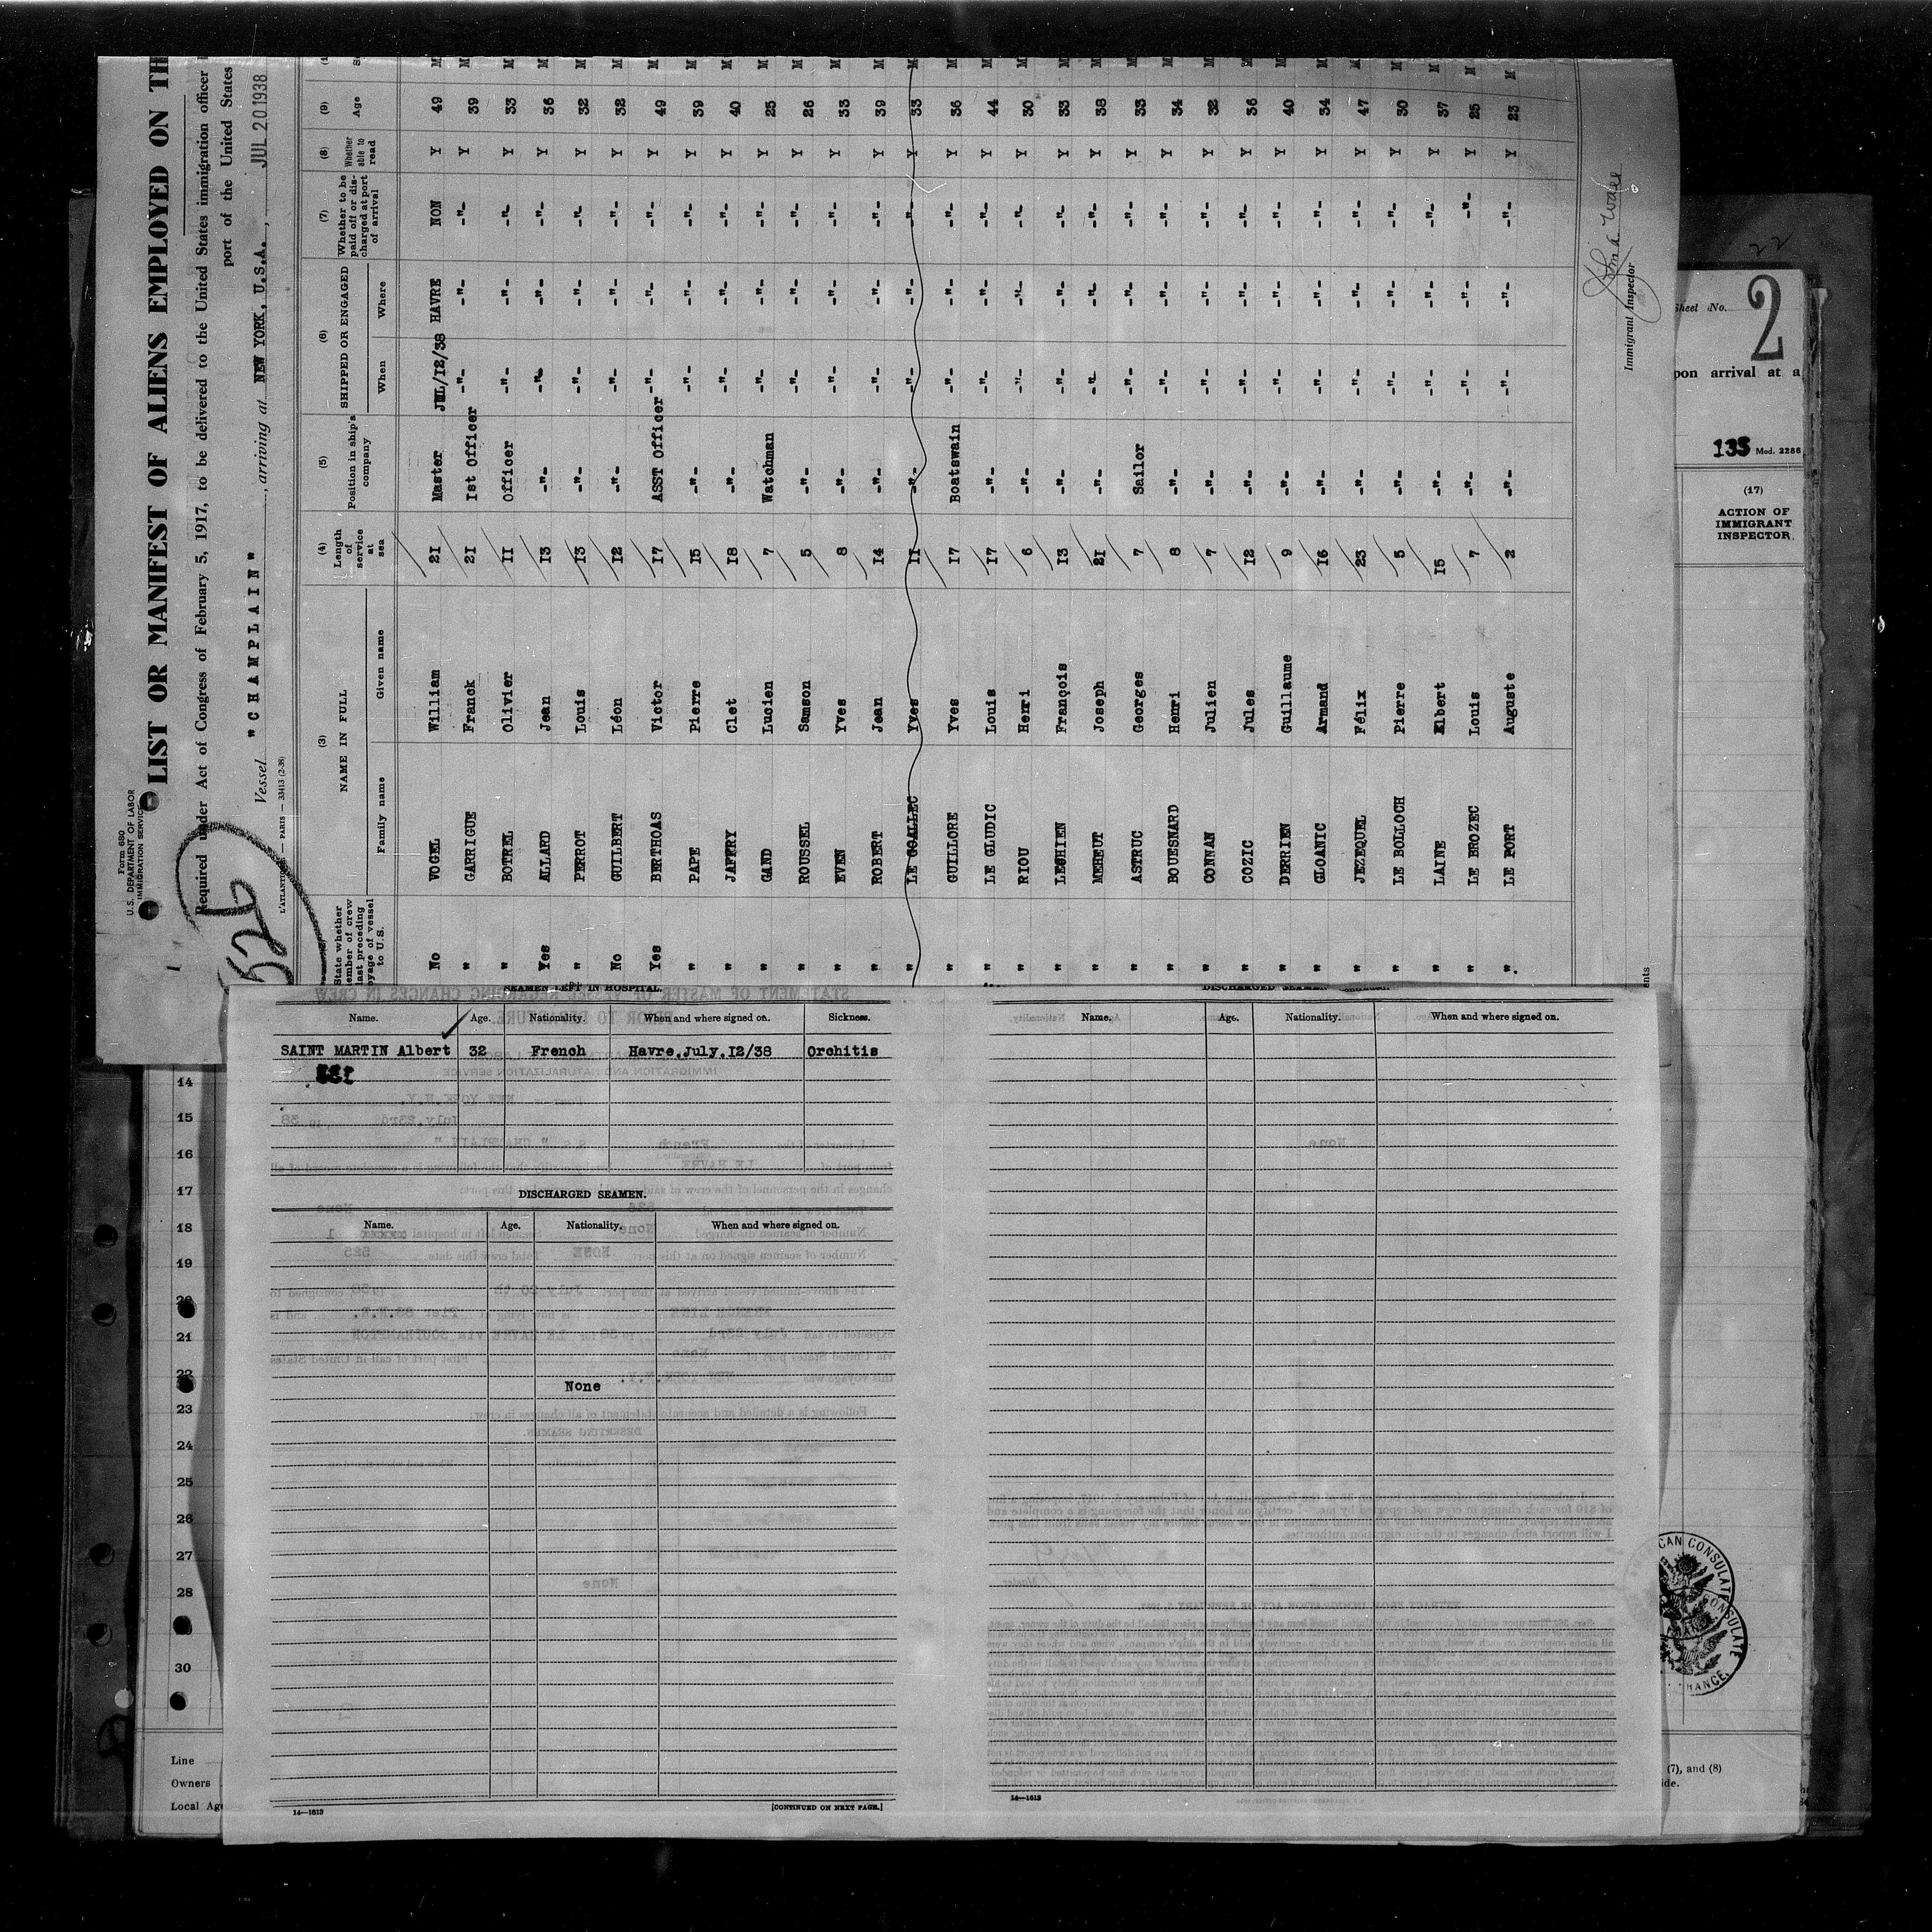 Form 680
U.S. DEPARTMENT OF LABOR
IMMIGRATION SERVICE
LIST OR MANIFEST OF ALIENS EMPLOYED ON TH
Required under Act of Congress of February 5, 1917, to be delivered to the United States immigration officer
port of the United States
Vessel "CHAMPLAIN", arriving at NEW YORK, U.S.A., JUL 20 1938
L'ATLANTIQUE — PARIS — 33413 (2-38)
526
State whether member of crew last preceding voyage of vessel to U.S.
(3) NAME IN FULL
Family name
Given name
(4) Length of service at sea
(5) Position in ship's company
(6) SHIPPED OR ENGAGED
When
Where
(7) Whether to be paid off or discharged at port of arrival
(8) Whether able to read
(9) Age
No VOGEL William 21 Master JUL/12/38 HAVRE NON Y 49 M
" GARRIGUE Franck 21 1st Officer -"- -"- -"- Y 39 M
" BOTREL Olivier 11 Officer -"- -"- -"- Y 33 M
Yes ALLARD Jean 13 -"- -"- -"- -"- Y 36 M
" PERROT Louis 13 -"- -"- -"- -"- Y 32 M
No GUILBERT Léon 12 -"- -"- -"- -"- Y 32 M
Yes BERTHOAS Victor 17 ASST Officer -"- -"- -"- Y 49 M
" PAPE Pierre 15 -"- -"- -"- -"- Y 39 M
" JAFFRY Clet 18 -"- -"- -"- -"- Y 40 M
" GAND Lucien 7 Watchman -"- -"- -"- Y 25 M
" ROUSSEL Samson 5 -"- -"- -"- -"- Y 26 M
" EVEN Yves 8 -"- -"- -"- -"- Y 33 M
" ROBERT Jean 14 -"- -"- -"- -"- Y 39 M
" LE GOALLEC Yves 11 -"- -"- -"- -"- Y 33 M
" GUILLORE Yves 17 Boatswain -"- -"- -"- Y 36 M
" LE GLUDIC Louis 17 -"- -"- -"- -"- Y 44 M
" RIOU Henri 6 -"- -"- -"- -"- Y 30 M
" LEGHIEN François 13 -"- -"- -"- -"- Y 33 M
" MEHEUT Joseph 21 -"- -"- -"- -"- Y 38 M
" ASTRUC Georges 7 Sailor -"- -"- -"- Y 33 M
" BOUESNARD Henri 8 -"- -"- -"- -"- Y 34 M
" CONNAN Julien 7 -"- -"- -"- -"- Y 32 M
" COZIC Jules 12 -"- -"- -"- -"- Y 36 M
" DERRIEN Guillaume 9 -"- -"- -"- -"- Y 40 M
" GLOANIC Armand 16 -"- -"- -"- -"- Y 34 M
" JEZEQUEL Félix 23 -"- -"- -"- -"- Y 47 M
" LE BOLLOCH Pierre 5 -"- -"- -"- -"- Y 30 M
" LAINE Albert 15 -"- -"- -"- -"- Y 37 M
" LE BROZEC Louis 7 -"- -"- -"- -"- Y 25 M
" LE PORT Auguste 2 -"- -"- -"- -"- Y 23 M
Immigrant Inspector
22
Sheet No. 2
pon arrival at a
135 Mod. 2286
(17)
ACTION OF
IMMIGRANT
INSPECTOR
SEAMEN LEFT IN HOSPITAL.
Name. Age. Nationality. When and where signed on. Sickness.
SAINT MARTIN Albert 32 French Havre.July.12/38 Orchitis
DISCHARGED SEAMEN.
Name. Age. Nationality. When and where signed on.
None
14—1613
[CONTINUED ON NEXT PAGE.]
DISCHARGED SEAMEN
Name. Age. Nationality. When and where signed on.
14—1613
14
15
16
17
18
19
20
21
22
23
24
25
26
27
28
29
30
Line
Owners
Local Ag
(7), and (8)
ide.
CAN CONSULAT
CONSULATE